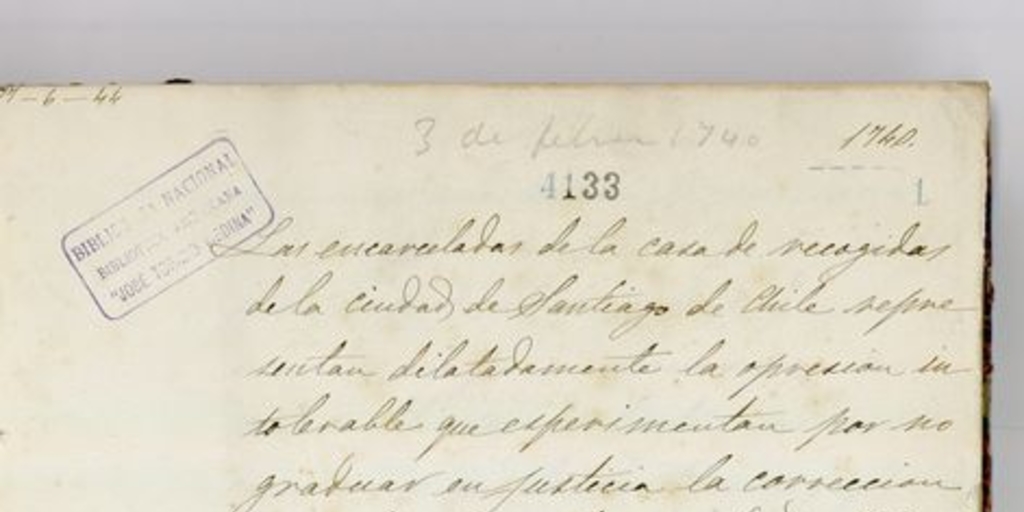 -6-44
3 de febrero 1740
1740.
4133
1
BIBLIOTECA NACIONAL
BIBLIOTECA AMERICANA
"JOSÉ TORIBIO MEDINA"
Las encarceladas de la casa de recogidas
de la ciudad de Santiago de Chile repre
sentan dilatadamente la opresion in
tolerable que esperimentan por no
graduar en justicia la correccion